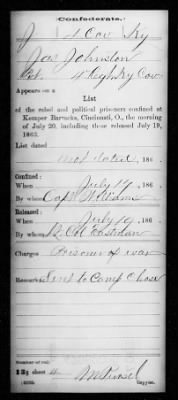 Confederate.
J 4 Cav Ky
Jas Johnston
Pvt. 4" Regt. Ky Cav
Appears on a
List
of the rebel and political prisoners confined at
Kemper Barracks, Cincinnati, O., the morning
of July 20, including those released July 19,
1863.
List dated
not dated, 186 .
Confined:
When July 17, 186 .
By whom Capt Williams
Released:
When July 19, 186 .
By whom Lt. Col Eastman
Charges Prisoner of war
Remarks: Sent to Camp Chase
Number of roll:
sheet
Copyist.